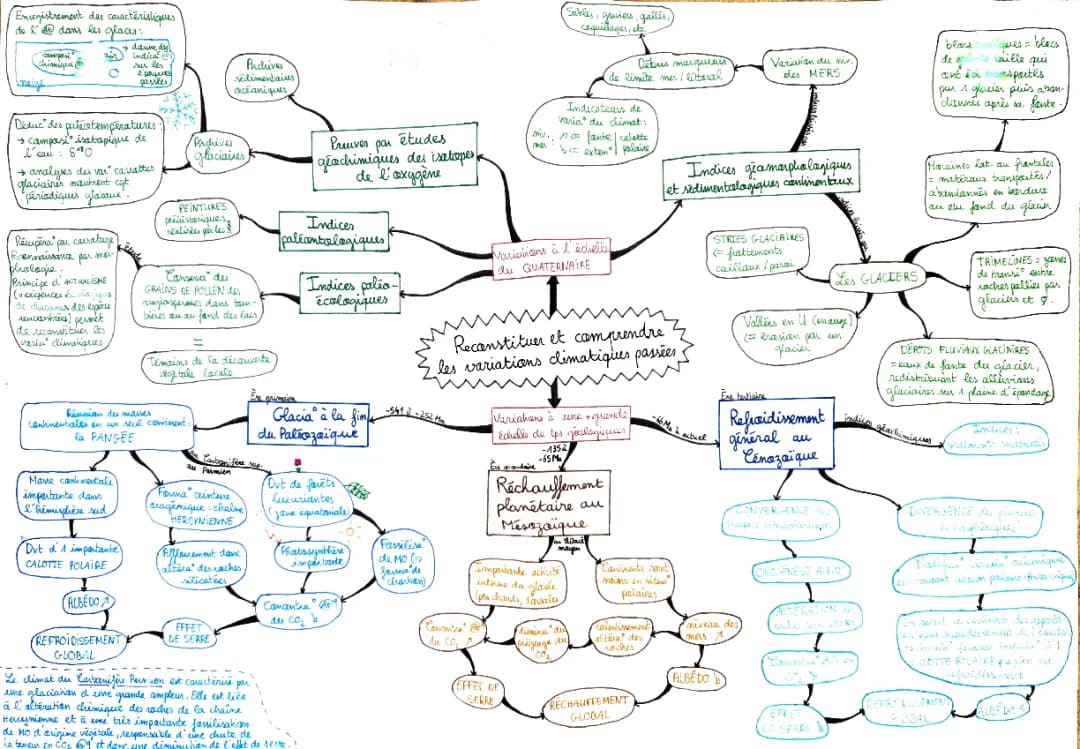 Enregistrement des caractéristiques
de l' dans les glaces:
composi°
chimique
air
→ donne des
indica°
sur les
époques
passées
neige
Archives
sédimentaires
océaniques
Déduc° des paléotempératures:
→ composi° isotopique de
l'eau : δ¹⁸O
→ analyses des var° carottes
glaciaires montrent cpt
périodiques glaciaux.
Archives
glaciaires
Preuves par études
géochimiques des isotopes
de l'oxygène
PEINTURES
préhistoriques
réalisées par les
Indices
paléontologiques
Récupéra° par carottage
Reconnaissance par mor-
phologie.
Principe d'ACTUALISME
(= exigences écologiques
de chacunes des espèces
rencontrées) permet
de reconstituer les
varia° climatiques
études
Conserva° des
GRAINS DE POLLEN des
angiospermes dans tour-
bières ou au fond des lacs
=
Témoins de la découverte
végétale locale
Indices paléo-
écologiques
Variations à l'échelle
du QUATERNAIRE
Sables, graviers, galets,
coquillages, etc
Débris marqueurs
de limite mer / littoral
Variation du niv.
des MERS
Indicateurs de
varia° du climat:
niv.
mer
↗ <= fonte / calotte
↘ <= exten° / polaire
Indices géomorphologiques
et sédimentologiques continentaux
blocs = blocs
de taille qui
ont été transportés
par 1 glacier puis aban-
donnés après sa fonte.
Moraines lat. ou frontales
= matériaux transportés /
abandonnés en bordure
ou au fond du glacier
STRIES GLACIAIRES
<= frottements
cailloux / paroi
LES GLACIERS
TRIMLINES = zones
de transi° entre
roches polies par
glaciers et
Vallées en U (en auge)
<= érosion par un
glacier
DÉPÔTS FLUVIAUX GLACIAIRES
= eaux de fonte du glacier,
redistribuant les alluvions
glaciaires sur 1 plaine d'épandage
Reconstituer et comprendre
les variations climatiques passées
Variations à une + grande
échelle de tps géologiques
-541 à -252 Ma
Ère primaire
Glacia° à la fin
du Paléozoïque
Réunion des masses
continentales en un seul continent:
la PANGÉE
au Carbonifère sur-
au Permien
Masse continentale
importante dans
l'hémisphère sud
Forma° ceinture
orogénique - chaîne
HERCYNIENNE
Dvt de forêts
luxuriantes
(zone équatoriale)
Dvt d'1 importante
CALOTTE POLAIRE
Affleurement donc
altéra° des roches
silicatées
Photosynthèse
importante
Fossilisa°
de MO (=>
forma° de
charbon)
ALBÉDO ↗
Concentra°
du CO₂ ↘
EFFET
DE SERRE
REFROIDISSEMENT
GLOBAL
Le climat du Carbonifère Permien est caractérisé par
une glaciation d'une grande ampleur. Elle est liée
à l'altération chimique des roches de la chaîne
Hercynienne et à une très importante fossilisation
de MO d'origine végétale, responsable d'une chute de
la teneur en CO₂ et donc une diminution de l'effet de serre.
-135 à
-65 Ma
Ère secondaire
Réchauffement
planétaire au
Mésozoïque
Importante activité
interne du globe
(pts chauds, dorsales
Continents sont
moins en situa°
polaires
Concentra°
du CO₂ ↗
diminu° du
piégeage du
CO₂
ralentissement
altéra° des
roches
niveau des
mers ↗
EFFET DE
SERRE
ALBÉDO ↘
RECHAUFFEMENT
GLOBAL
-66 Ma à actuel
Ère tertiaire
Refroidissement
général au
Cénozoïque
indices géochimiques
Indices:
CONVERGENCE des
plaques lithosphériques
OROGENÈSE ALPINE
ALTÉRATION des
EFFET
DE SERRE ↘
CONVERGENCE des plaques
lithosphériques
CALOTTE POLAIRE
refroidissement
ALBÉDO
REFROIDISSEMENT
GLOBAL